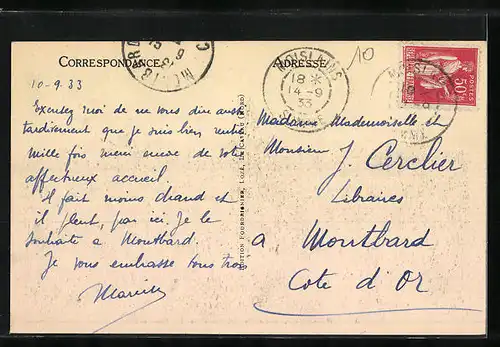 CORRESPONDANCE
ADRESSE
10
18 *
14-9
33
50c
10-9.33
Excusez moi de ne vous dire aussi
tardivement que je suis bien rentré
mille fois merci encore de votre
affectueux accueil.
Il fait moins chaud et
il pleut, par ici. Je le
souhaite à Montbard
Je vous embrasse tous trois
Marcelle
Madame Mademoiselle et
Monsieur J. Cerclier
Libraires
à Montbard
Cote d'Or